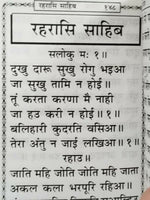 रहरासि साहिब
१४८
रहरासि साहिब
सलोकु मः १॥
दुखु दारू सुखु रोगु भइआ
जा सुखु तामि न होई॥
तूं करता करणा मै नाही
जा हउ करी न होई॥१॥
बलिहारी कुदरति वसिआ॥
तेरा अंतु न जाई लखिआ॥१॥
रहाउ॥
जाति महि जोति जोति महि जाता
अकल कला भरपूरि रहिआ॥